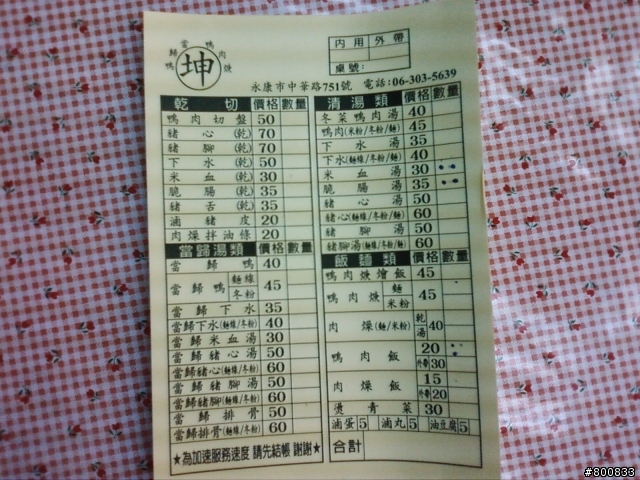 當歸鴨 鴨肉焿
坤
內用 外帶
桌號:
永康市中華路751號 電話:06-303-5639
乾切 價格 數量
鴨肉切盤 50
豬心(乾) 70
豬腳(乾) 70
下水(乾) 50
米血(乾) 30
脆腸(乾) 35
豬舌(乾) 35
滷豬皮 20
肉燥拌油條 20
當歸湯類 價格 數量
當歸鴨 40
當歸鴨 麵線 冬粉 45
當歸下水 35
當歸下水(麵線/冬粉) 40
當歸米血湯 30
當歸豬心湯 50
當歸豬心(麵線/冬粉) 60
當歸豬腳湯 50
當歸豬腳(麵線/冬粉) 60
當歸排骨 50
當歸排骨(麵線/冬粉) 60
★為加速服務速度 請先結帳 謝謝★
清湯類 價格 數量
冬菜鴨肉湯 40
鴨肉(米粉/冬粉/麵) 45
下水湯 35
下水(麵線/冬粉/麵) 40
米血湯 30
脆腸湯 35
豬心湯 50
豬心(麵線/冬粉/麵) 60
豬腳湯 50
豬腳湯(麵線/冬粉/麵) 60
飯麵類 價格 數量
鴨肉焿燴飯 45
鴨肉焿 麵 米粉 45
肉燥(麵/米粉) 乾湯 40
鴨肉飯 20
外帶 30
肉燥飯 15
外帶 20
燙青菜 30
滷蛋 5 滷丸 5 油豆腐 5
合計
#800833